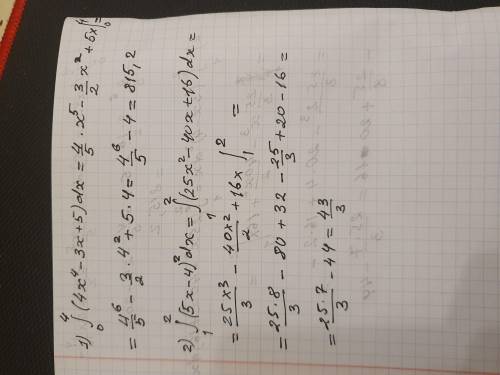 1) ∫₀⁴ (4x⁴ - 3x + 5) dx = 4/5 · x⁵ - 3/2 x² + 5x |₀⁴ =
= 4⁶/5 - 3/2 · 4² + 5 · 4 = 4⁶/5 - 4 = 815,2
2) ∫₁² (5x - 4)² dx = ∫₁² (25x² - 40x + 16) dx =
= 25x³/3 - 40x²/2 + 16x ∫₁² =
= 25·8/3 - 80 + 32 - 25/3 + 20 - 16 =
= 25·7/3 - 44 = 43/3